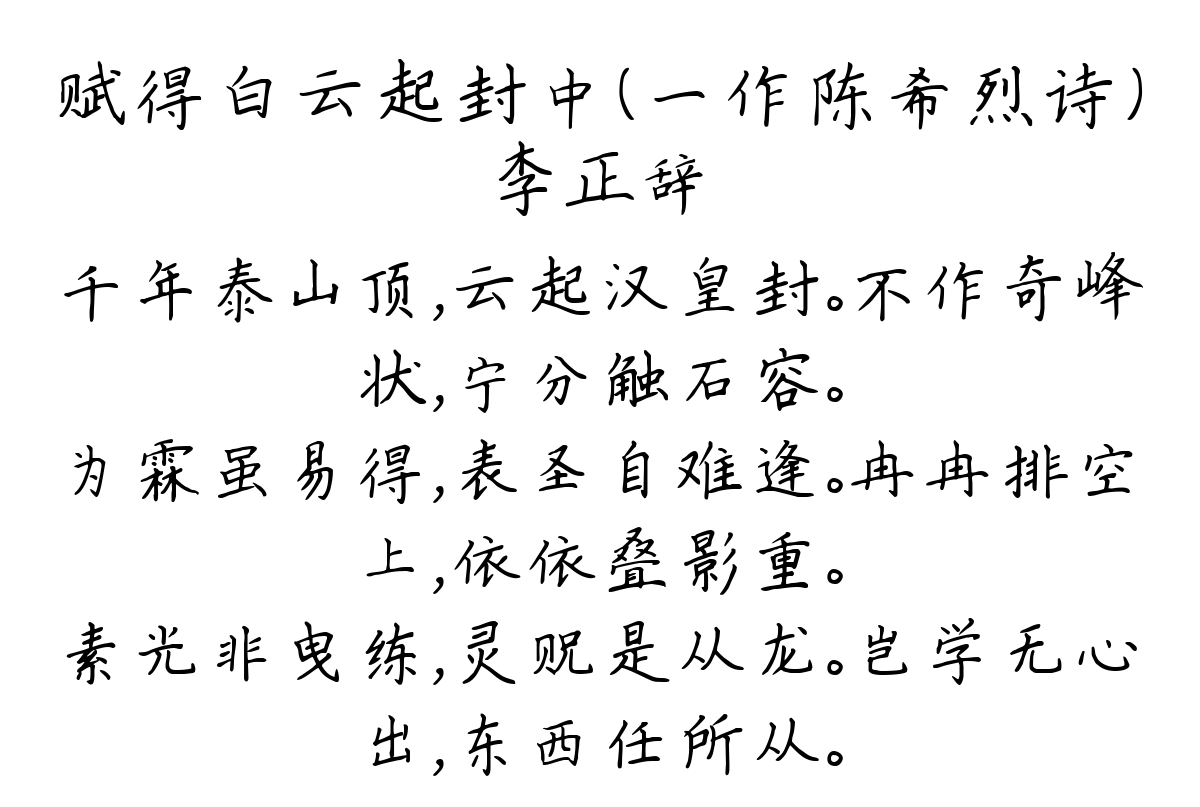 赋得白云起封中(一作陈希烈诗)
李正辞
千年泰山顶,云起汉皇封。不作奇峰
状,宁分触石容。
为霖虽易得,表圣自难逢。冉冉排空
上,依依叠影重。
素光非曳练,灵贶是从龙。岂学无心
出,东西任所从。